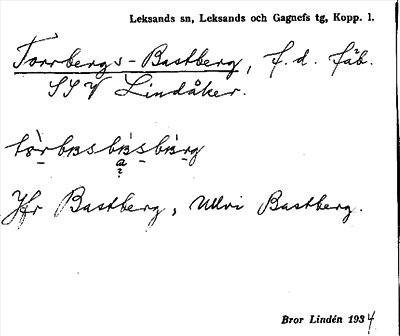 Leksands sn, Leksands och Gagnefs tg, Kopp. l.
Torrbergs-Bastberg, f.d. fäb.
SSV Lindåker.
Jfr Bastberg, Ullvi Bastberg.
Bror Lindén 1934